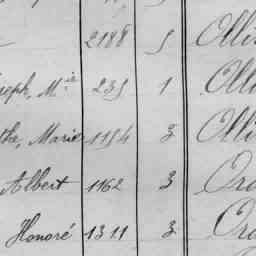 2188 5 Olli
seph, M.ie 235 1 Olli
the, Marie 1154 3 Olli
Albert 1162 3 Ora
Honoré 1311 3 Ora